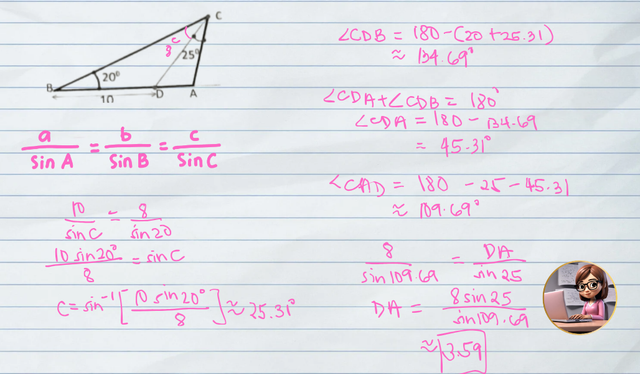 C
8
C
25°
20°
B
D
A
10
a/sin A = b/sin B = c/sin C
10/sin C = 8/sin 20
10 sin 20°/8 = sin C
C = sin⁻¹ [10 sin 20°/8] ≈ 25.31°
∠CDB = 180 - (20 + 25.31)
≈ 134.69°
∠CDA + ∠CDB = 180°
∠CDA = 180 - 134.69
= 45.31°
∠CAD = 180 - 25 - 45.31
≈ 109.69°
8/sin 109.69 = DA/sin 25
DA = 8 sin 25/sin 109.69
≈ 3.59